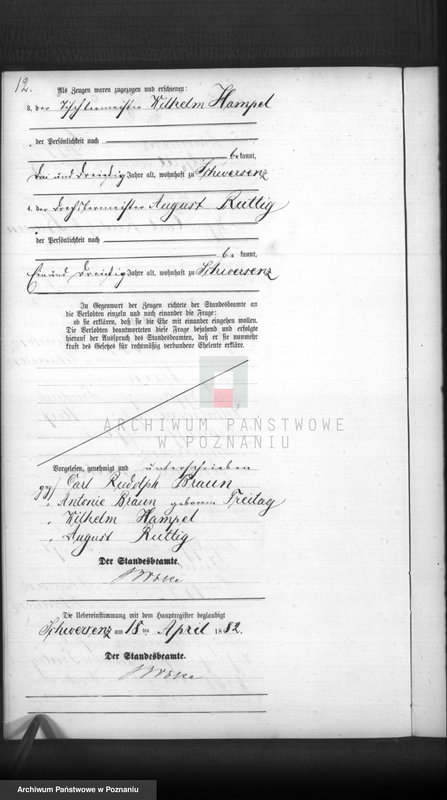 12.
Als Zeugen waren zugezogen und erschienen:
3. der Tischlermeister Wilhelm Hampel
der Persönlichkeit nach
be kannt,
drei und dreißig Jahre alt, wohnhaft zu Schwersenz
4. der Drechslermeister August Ruttig
der Persönlichkeit nach
be kannt,
Ein und dreißig Jahre alt, wohnhaft zu Schwersenz
In Gegenwart der Zeugen richtete der Standesbeamte an
die Verlobten einzeln und nach einander die Frage:
ob sie erklären, daß sie die Ehe mit einander eingehen wollen.
Die Verlobten beantworteten diese Frage bejahend und erfolgte
hierauf der Ausspruch des Standesbeamten, daß er sie nunmehr
kraft des Gesetzes für rechtmäßig verbundene Eheleute erkläre.
ARCHIWUM PAŃSTWOWE
W POZNANIU
Vorgelesen, genehmigt und unterschrieben
gez. Carl Rudolph Braun
" Antonie Braun geborene Freitag
" Wilhelm Hampel
" August Ruttig
Der Standesbeamte.
Die Uebereinstimmung mit dem Hauptregister beglaubigt
Schwersenz am 18 ten April 1882.
Der Standesbeamte.
Archiwum Państwowe w Poznaniu